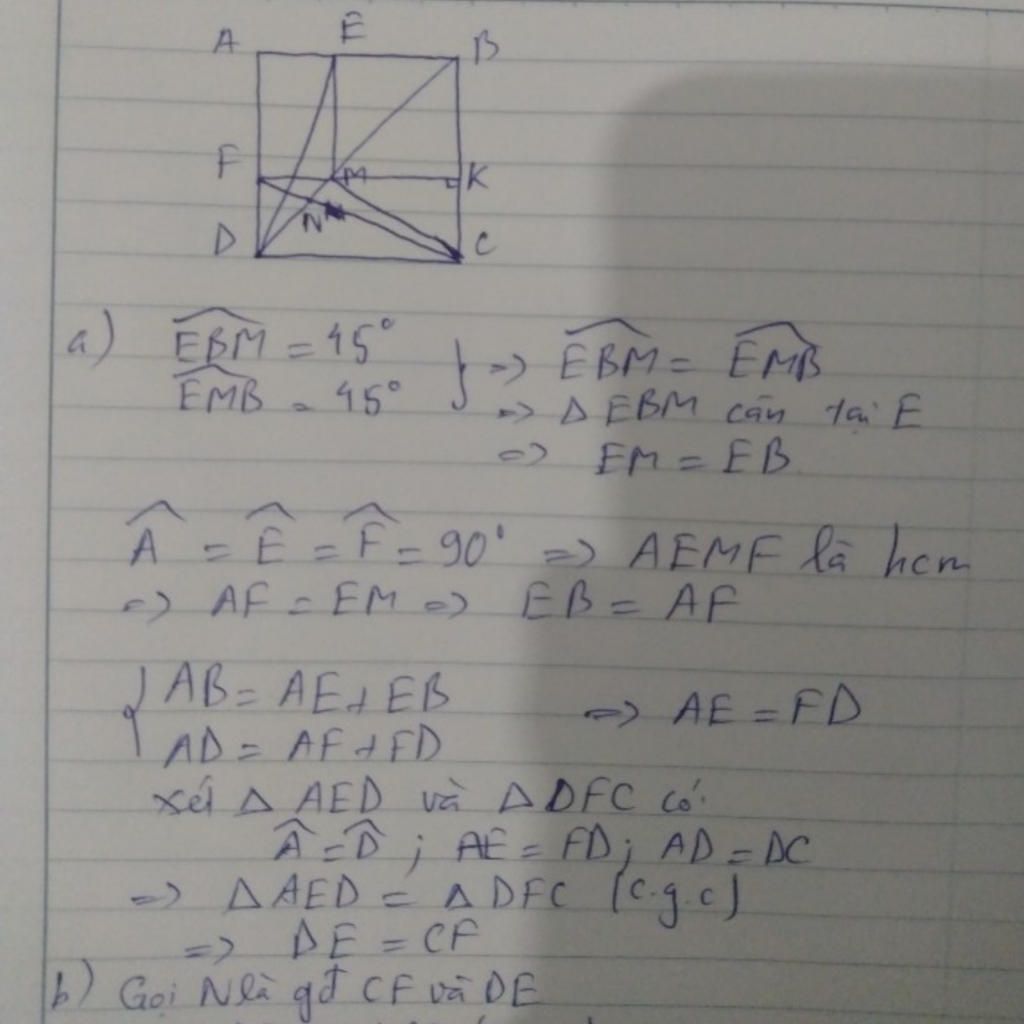 A E B
F M K
N
D C
a) EBM = 45°
EMB = 45°
} => EBM = EMB
=> Δ EBM cân tại E
=> EM = EB
A = E = F = 90° => AEMF là hcn
=> AF = EM => EB = AF
{ AB = AE + EB
AD = AF + FD
=> AE = FD
xét Δ AED và Δ DFC có:
A = D ; AE = FD ; AD = DC
=> Δ AED = Δ DFC (c.g.c)
=> DE = CF
b) Gọi N là gđ CF và DE